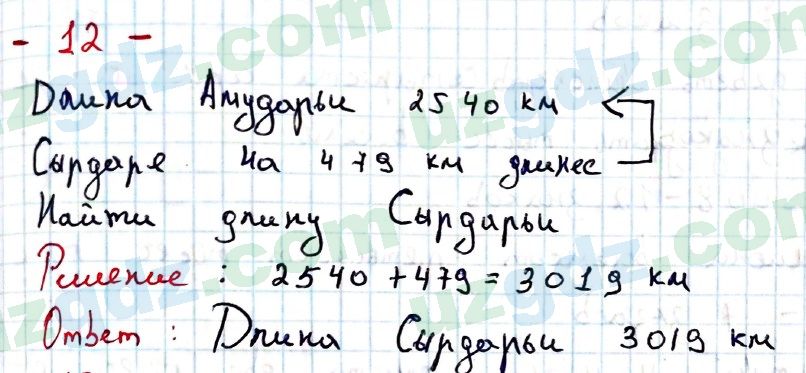 - 12 -
Длина Амударьи 2540 км
Сырдаря на 479 км длинее
Найти длину Сырдарьи
Решение : 2540 + 479 = 3019 км
Ответ : Длина Сырдарьи 3019 км
uzgdz.com